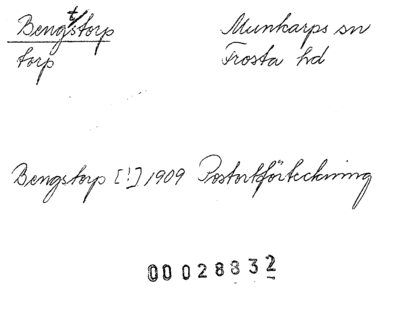 Bengtstorp Munkarps sn
torp Frosta hd
Bengstorp [!] 1909 Postortförteckning
00028832